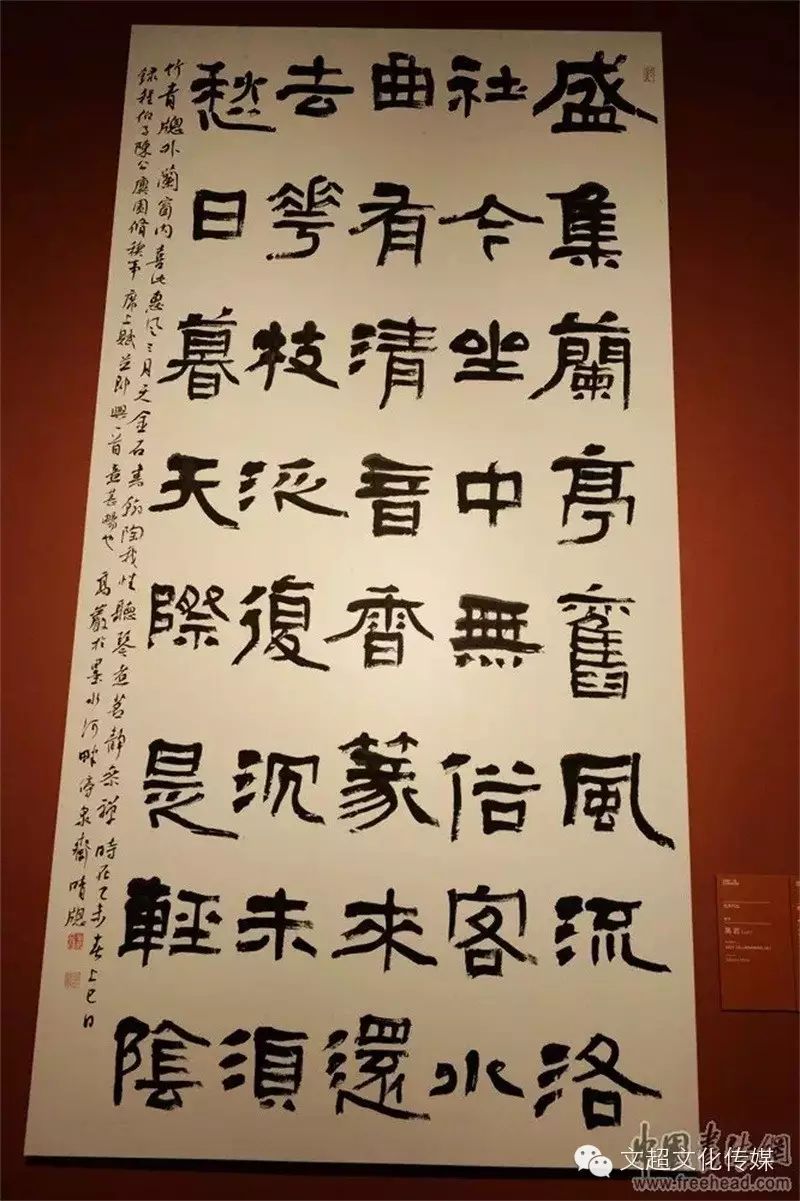 盛集蘭亭舊風流洛
社今坐中無俗客水
曲有清音香篆來還
去花枝泛復沉未須
愁日暮天際是輕陰
竹青牕外蘭窗内喜此惠風三月天金石書翰陶我性聽琴煮茗静參禪時在乙未春上巳日
録程伯子陳公廙園脩禊事席上賦並即興一首意甚暢也高嚴於墨水河畔泉齋晴牕
中国书法網
文超文化传媒
www.freehead.com